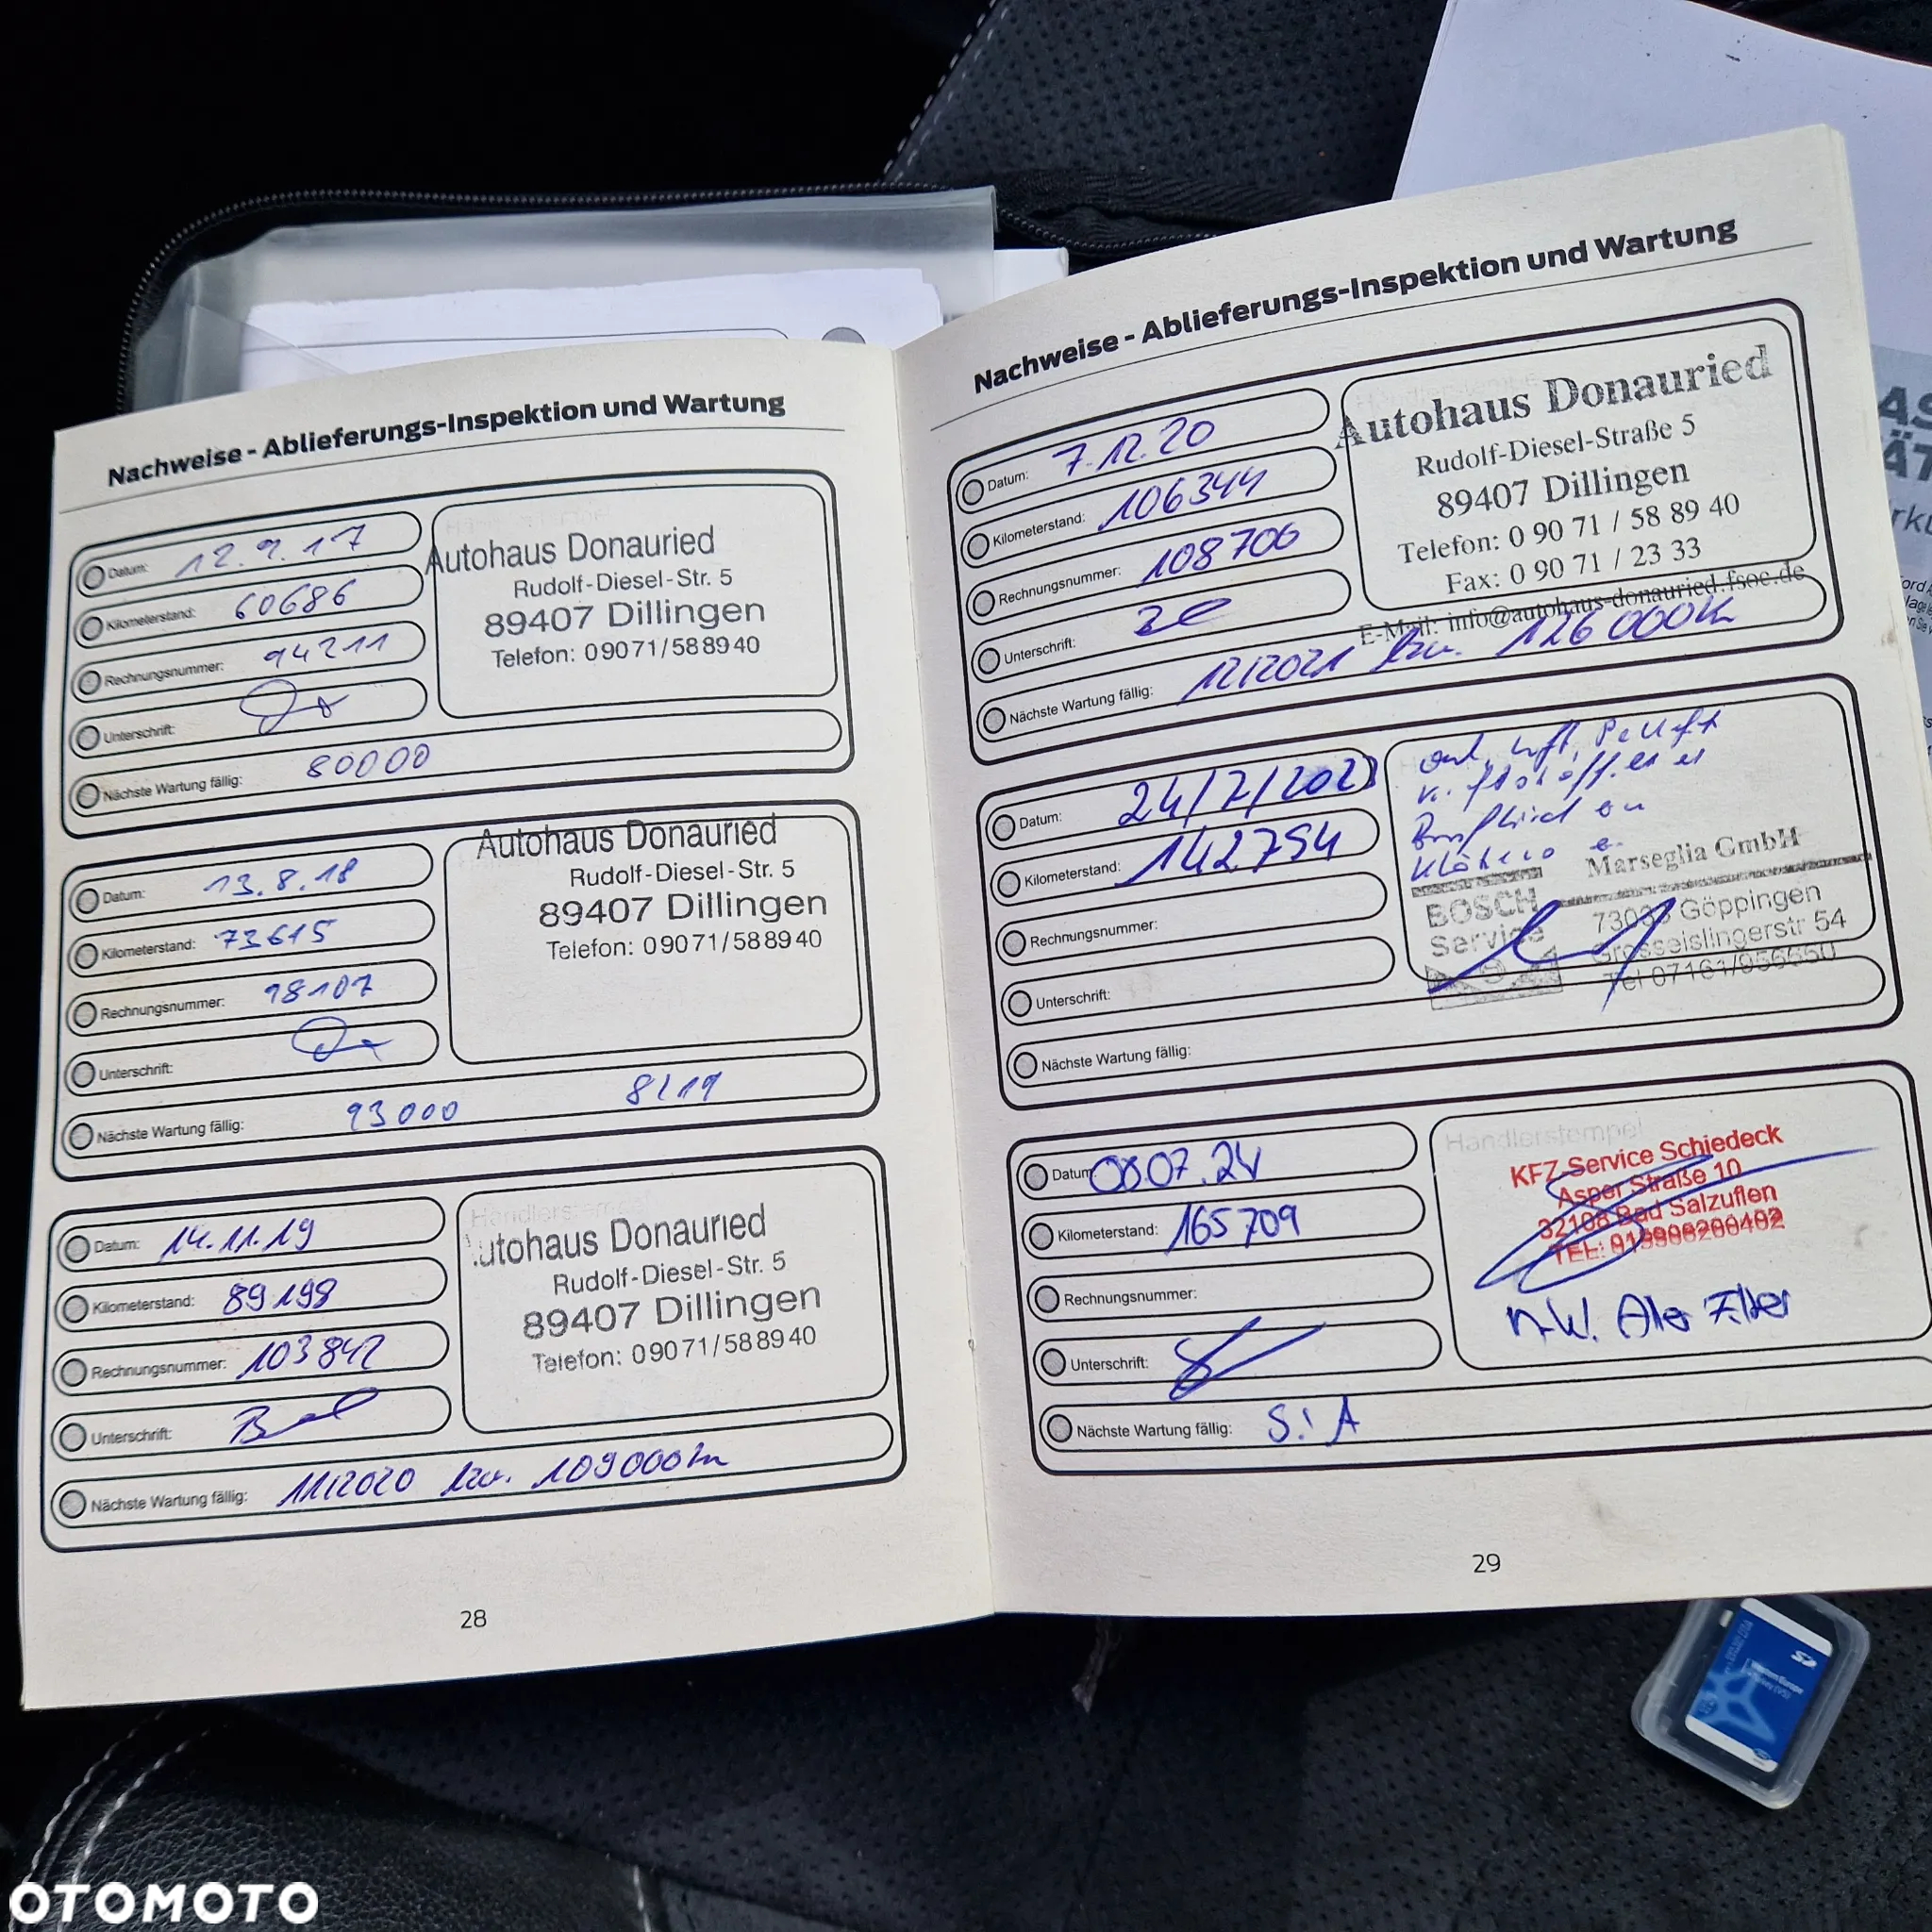 Nachweise - Ablieferungs-Inspektion und Wartung
Datum: 12.9.17
Kilometerstand: 60686
Rechnungsnummer: 94211
Unterschrift:
Nächste Wartung fällig: 80000
Autohaus Donauried
Rudolf-Diesel-Str. 5
89407 Dillingen
Telefon: 09071/588940
Datum: 13.8.18
Kilometerstand: 73615
Rechnungsnummer: 98107
Unterschrift:
Nächste Wartung fällig: 93000 8/19
Autohaus Donauried
Rudolf-Diesel-Str. 5
89407 Dillingen
Telefon: 09071/588940
Datum: 14.11.19
Kilometerstand: 89198
Rechnungsnummer: 103842
Unterschrift:
Nächste Wartung fällig: 11/2020 bzw. 109000km
Händlerstempel
utohaus Donauried
Rudolf-Diesel-Str. 5
89407 Dillingen
Telefon: 09071/588940
28
Nachweise - Ablieferungs-Inspektion und Wartung
Datum: 7.12.20
Kilometerstand: 106344
Rechnungsnummer: 108706
Unterschrift:
Nächste Wartung fällig: 12/2021 bzw. 126000km
Autohaus Donauried
Rudolf-Diesel-Straße 5
89407 Dillingen
Telefon: 0 90 71 / 58 89 40
Fax: 0 90 71 / 23 33
E-Mail: info@autohaus-donauried.fsoc.de
Datum: 24/7/2023
Kilometerstand: 142754
Rechnungsnummer:
Unterschrift:
Nächste Wartung fällig:
Luft, Pollen
BOSCH
Service
Marseglia GmbH
73033 Göppingen
Grosseislingerstr 54
Tel 07161/956650
Datum 07.24
Kilometerstand: 165709
Rechnungsnummer:
Unterschrift:
Nächste Wartung fällig: S.! A
Händlerstempel
KFZ-Service Schiedeck
Asper Straße 10
32108 Bad Salzuflen
TEL:
Filter
29
SD
OTOMOTO